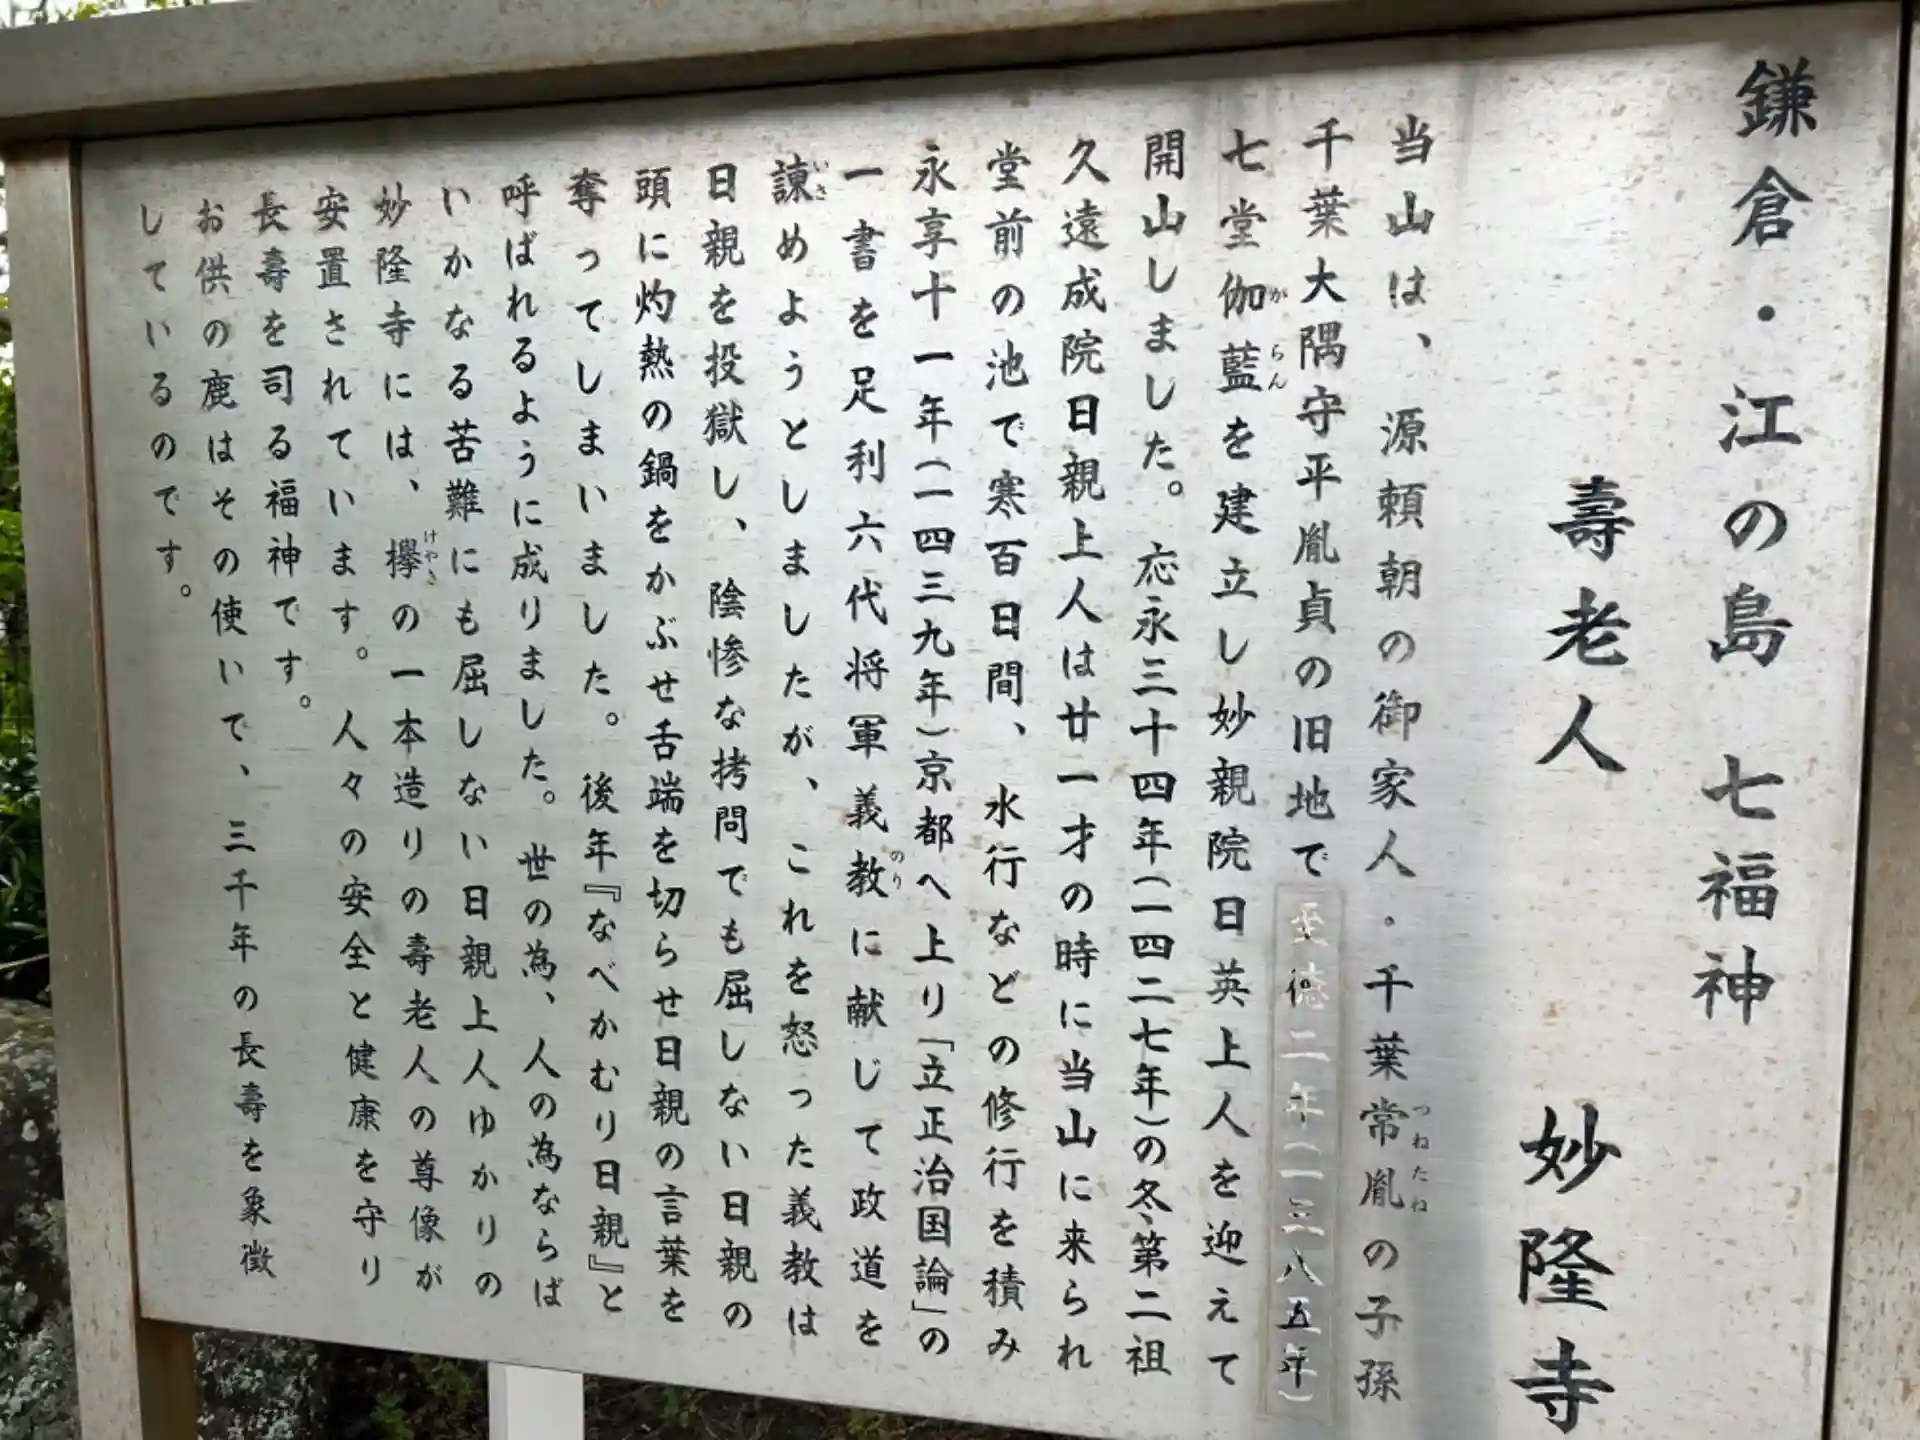 鎌倉・江の島 七福神
壽老人 妙隆寺
当山は、源頼朝の御家人・千葉常胤つねたねの子孫
千葉大隅守平胤貞の旧地で至徳二年(一三八五年)
七堂伽藍がらんを建立し妙親院日英上人を迎えて
開山しました。応永三十四年(一四二七年)の冬、第二祖
久遠成院日親上人は廿一才の時に当山に来られ
堂前の池で寒百日間、水行などの修行を積み
永享十一年(一四三九年)京都へ上り「立正治国論」の
一書を足利六代将軍義教のりに献じて政道を
諌いさめようとしましたが、これを怒った義教は
日親を投獄し、陰惨な拷問でも屈しない日親の
頭に灼熱の鍋をかぶせ舌端を切らせ日親の言葉を
奪ってしまいました。後年『なべかむり日親』と
呼ばれるように成りました。世の為、人の為ならば
いかなる苦難にも屈しない日親上人ゆかりの
妙隆寺には、欅けやきの一本造りの壽老人の尊像が
安置されています。人々の安全と健康を守り
長壽を司る福神です。
お供の鹿はその使いで、三千年の長壽を象徴
しているのです。